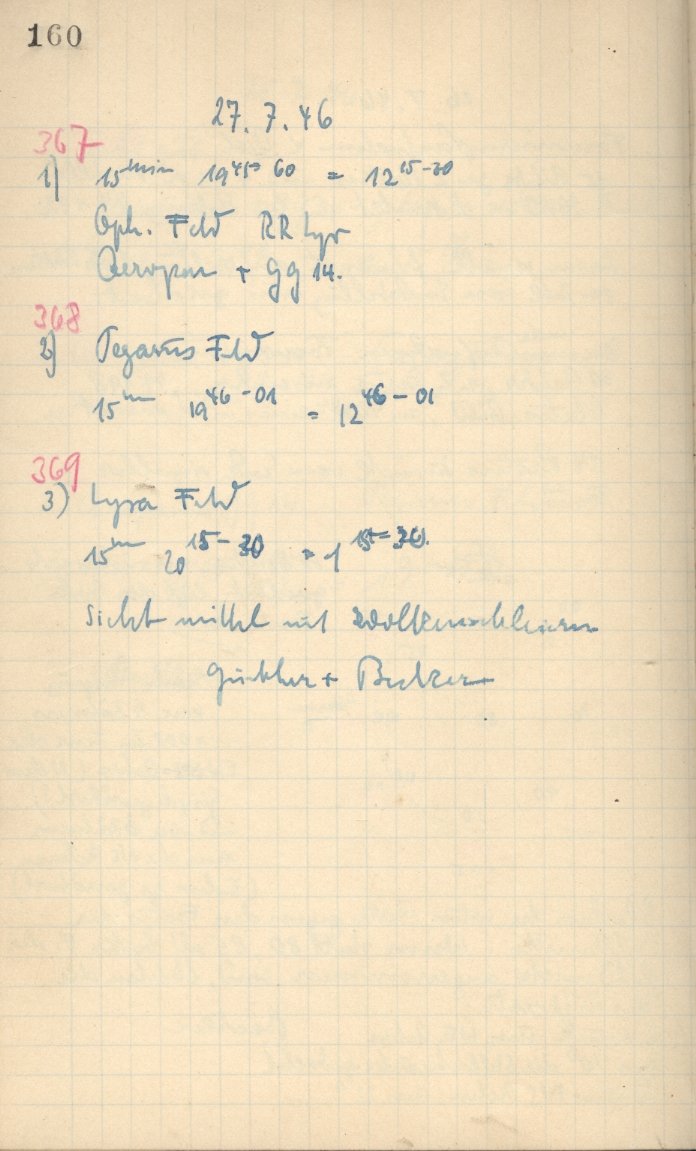 160
27. 7. 46
367
1) 15 min 19 45-60 = 12 15-30
Oph. Feld RR Lyr
+ Gg 14.
368
2) Pegasus Feld
15 m 19 46-01 = 12 46-01
369
3) Lyra Feld
15 m 20 15-30 = 1 15-30.
Sicht mittel mit Wolkenschleiern
Günther + Becker